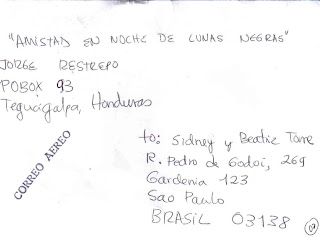 "AMISTAD EN NOCHE DE LUNAS NEGRAS"
JORGE RESTREPO
POBOX 93
Tegucigalpa, Honduras
CORREO AEREO
to: Sidney y Beatriz Torre
R. Pedro de Godoi, 269
Gardenia 123
Sao Paulo
BRASIL 03138